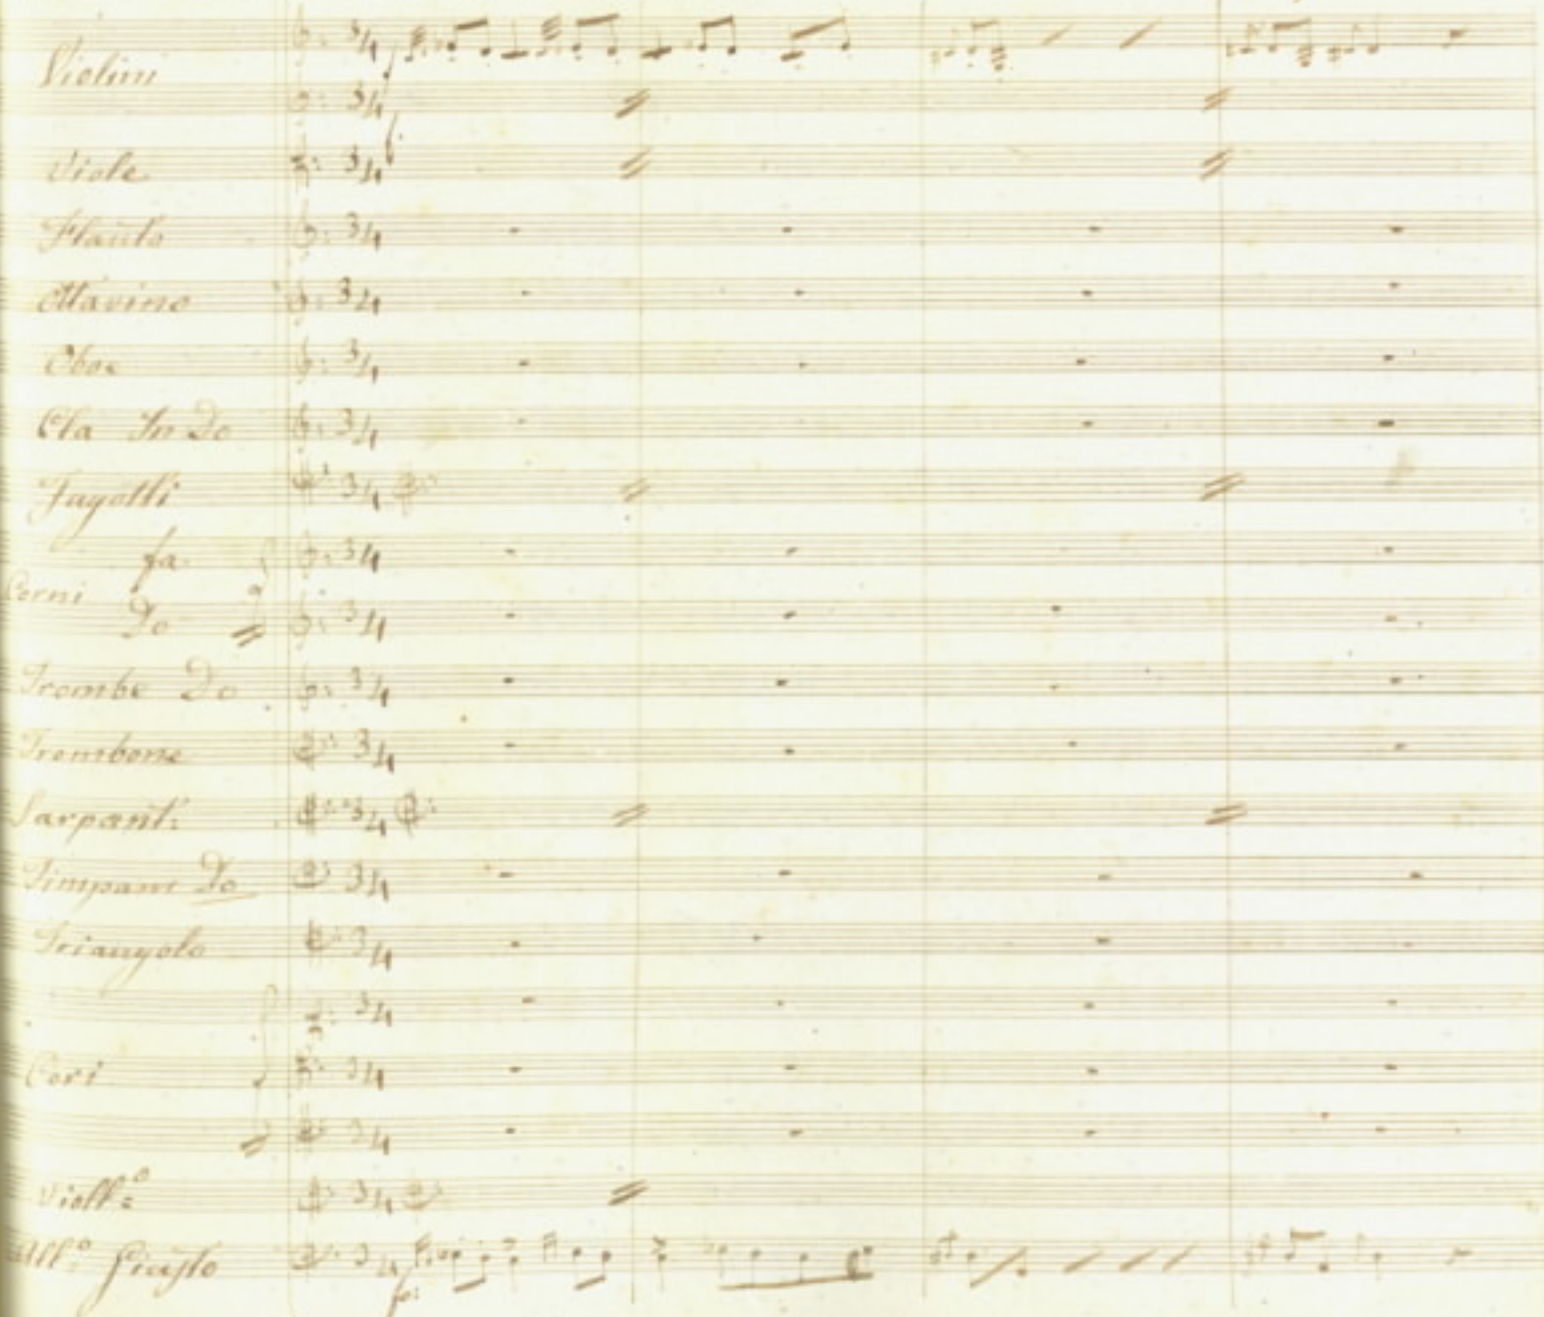 Violini
Viole
Flauto
Ottavino
Oboe
Cla In Do
Fagotti
fa
Corni
Do
Trombe Do
Trombone
Sarpanti
Timpani Do
Triangolo
Cori
Viollº
Allº Giusto
fo: